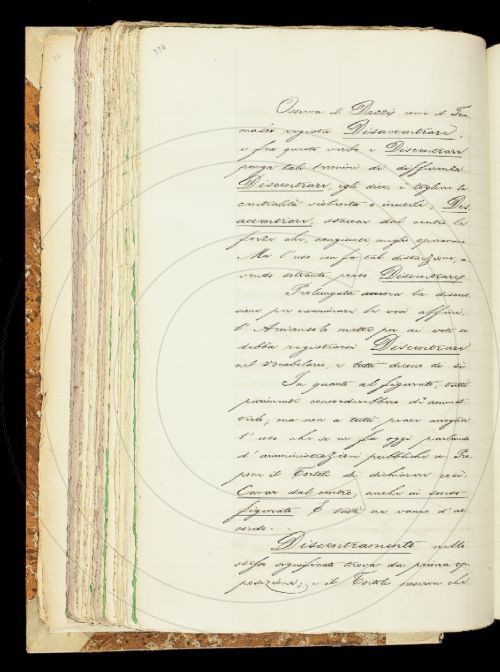 334
Osserva il Dazzi come il Tom-
maséo registri Disaccentrare,
e fra questo verbo e Discentrare
ponga tali termini di differenza.
Discentrare, egli dice, è togliere la
centralità violenta o inerte. Dis-
accentrare, staccar dal centro le
forze che, congiunte meglio operavano
Ma l'uso non fa tal distinzione, a-
vendo soltanto preso Discentrare
Prolungata ancora la discus-
sione per esaminare le voci affini,
l'Arciconsolo mette poi ai voti se
debba registrarsi Discentrare
nel Vocabolario, e tutti dicono di sì
In quanto al figurato, tutti
parimenti concorderebbero di ammet-
terlo, ma non a tutti piace accoglier
l'uso che se ne fa oggi parlando
d'amministrazioni pubbliche ec. Pro-
pone il Tortoli di dichiarare così:
Cavar dal centro, anche in senso
figurato. E tutti ne vanno d'ac-
cordo.
Discentramento nello
stesso significato trova da prima op-
posizione; e il Tortoli osserva che